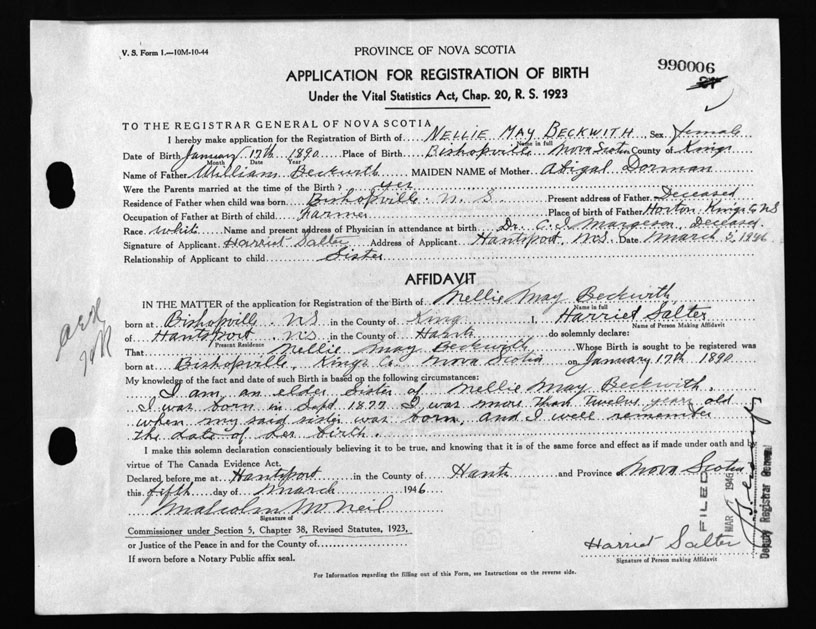 V. S. Form 1.—10M-10-44
PROVINCE OF NOVA SCOTIA
990006
APPLICATION FOR REGISTRATION OF BIRTH
Under the Vital Statistics Act, Chap. 20, R. S. 1923
TO THE REGISTRAR GENERAL OF NOVA SCOTIA
I hereby make application for the Registration of Birth of NELLIE MAY BECKWITH Sex female
Name in full
Date of Birth January 17th 1890 Place of Birth Bishopville Nova Scotia County of Kings
Month Date Year
Name of Father William Beckwith MAIDEN NAME of Mother Abigal Dorman
Were the Parents married at the time of the Birth? yes
Residence of Father when child was born Bishopville. N. S. Present address of Father Deceased
Occupation of Father at Birth of child Farmer Place of birth of Father Horton Kings Co NS
Race white Name and present address of Physician in attendance at birth Dr. C. I. Margeson, Deceased
Signature of Applicant Harriet Salter Address of Applicant Hantsport, N.S. Date March 5, 1946
Relationship of Applicant to child Sister
AFFIDAVIT
IN THE MATTER of the application for Registration of the Birth of Nellie May Beckwith
Name in full
born at Bishopville. NS in the County of Kings I, Harriet Salter
Name of Person Making Affidavit
of Hantsport NS in the County of Hants do solemnly declare:
Present Residence
That Nellie May Beckwith Whose Birth is sought to be registered was
born at Bishopville, Kings Co. Nova Scotia on January 17th 1890
My knowledge of the fact and date of such Birth is based on the following circumstances:
I am an elder sister of Nellie May Beckwith.
I was born in Sept 1877 I was more than twelve years old
when my said sister was born, and I well remember
the date of her birth.
I make this solemn declaration conscientiously believing it to be true, and knowing that it is of the same force and effect as if made under oath and by
virtue of The Canada Evidence Act.
Declared before me at Hantsport in the County of Hants and Province of Nova Scotia
this fifth day of March 1946
Malcolm McNeil
Signature of
Commissioner under Section 5, Chapter 38, Revised Statutes, 1923,
or Justice of the Peace in and for the County of
If sworn before a Notary Public affix seal.
Harriet Salter
Signature of Person making Affidavit
For Information regarding the filling out of this Form, see Instructions on the reverse side.
FILED
MAR 1946
Deputy Registrar General